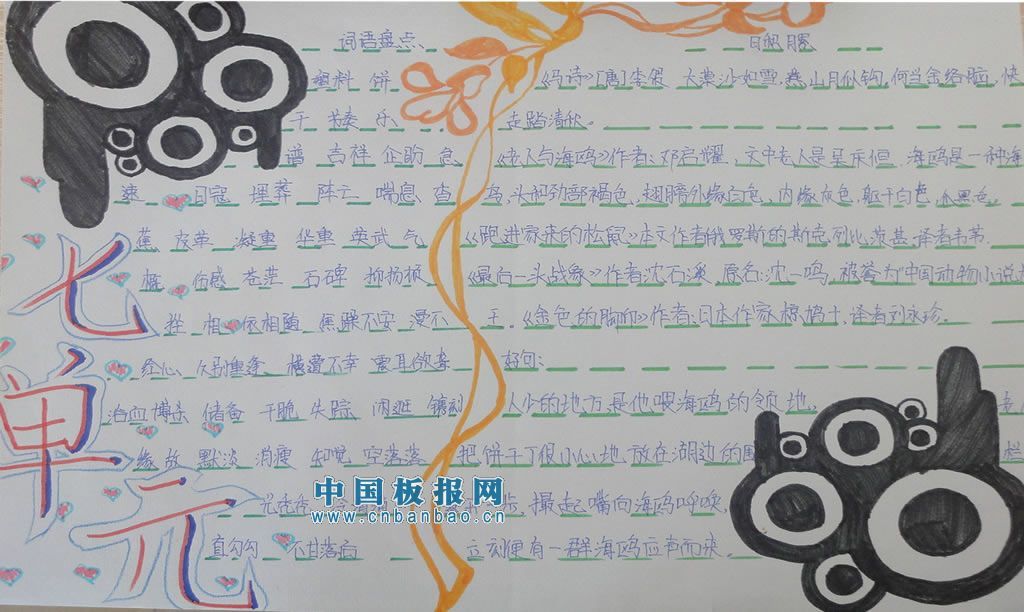 七单元
词语盘点
塑料 饼
干 节奏 乐
谱 吉祥 企盼 急
速 葬 阵亡 喘息 沓
蕉 皮革 凝重 华重 英武 气
概 伤感 苍茫 石碑 抑扬顿
挫 相依相随 焦躁不安 漫不
经心 久别重逢 横遭不幸 震耳欲聋
浴血 储备 干脆 失踪 闲逛 镌刻
缘故 黯淡 消瘦 知觉 空落落
直勾勾 不甘落后
日积月累
《马诗》[唐]李贺 大漠沙如雪,燕山月似钩,何当金络脑,快
走踏清秋。
《老人与海鸥》作者:邓启耀,文中老人是吴庆恒 海鸥是一种海
鸟,头部劲部褐色,翅膀外缘白色,内缘灰色,躯干白色,
《跑进家来的松鼠》本文作者俄罗斯的斯克列比茨基.译者韦苇.
《最后一头战象》作者沈石溪 原名:沈一鸣,被誉为"中国动物小说大
王。《金色的脚印》作者:日本作家椋鸠十,译者刘永珍.
好句:
人少的地方,是他喂海鸥的领地.
把饼干丁很小心地放在湖边的围
撮起嘴向海鸥呼唤,
立刻便有一群海鸥应声而来。
中国板报网
www.cnbanbao.cn